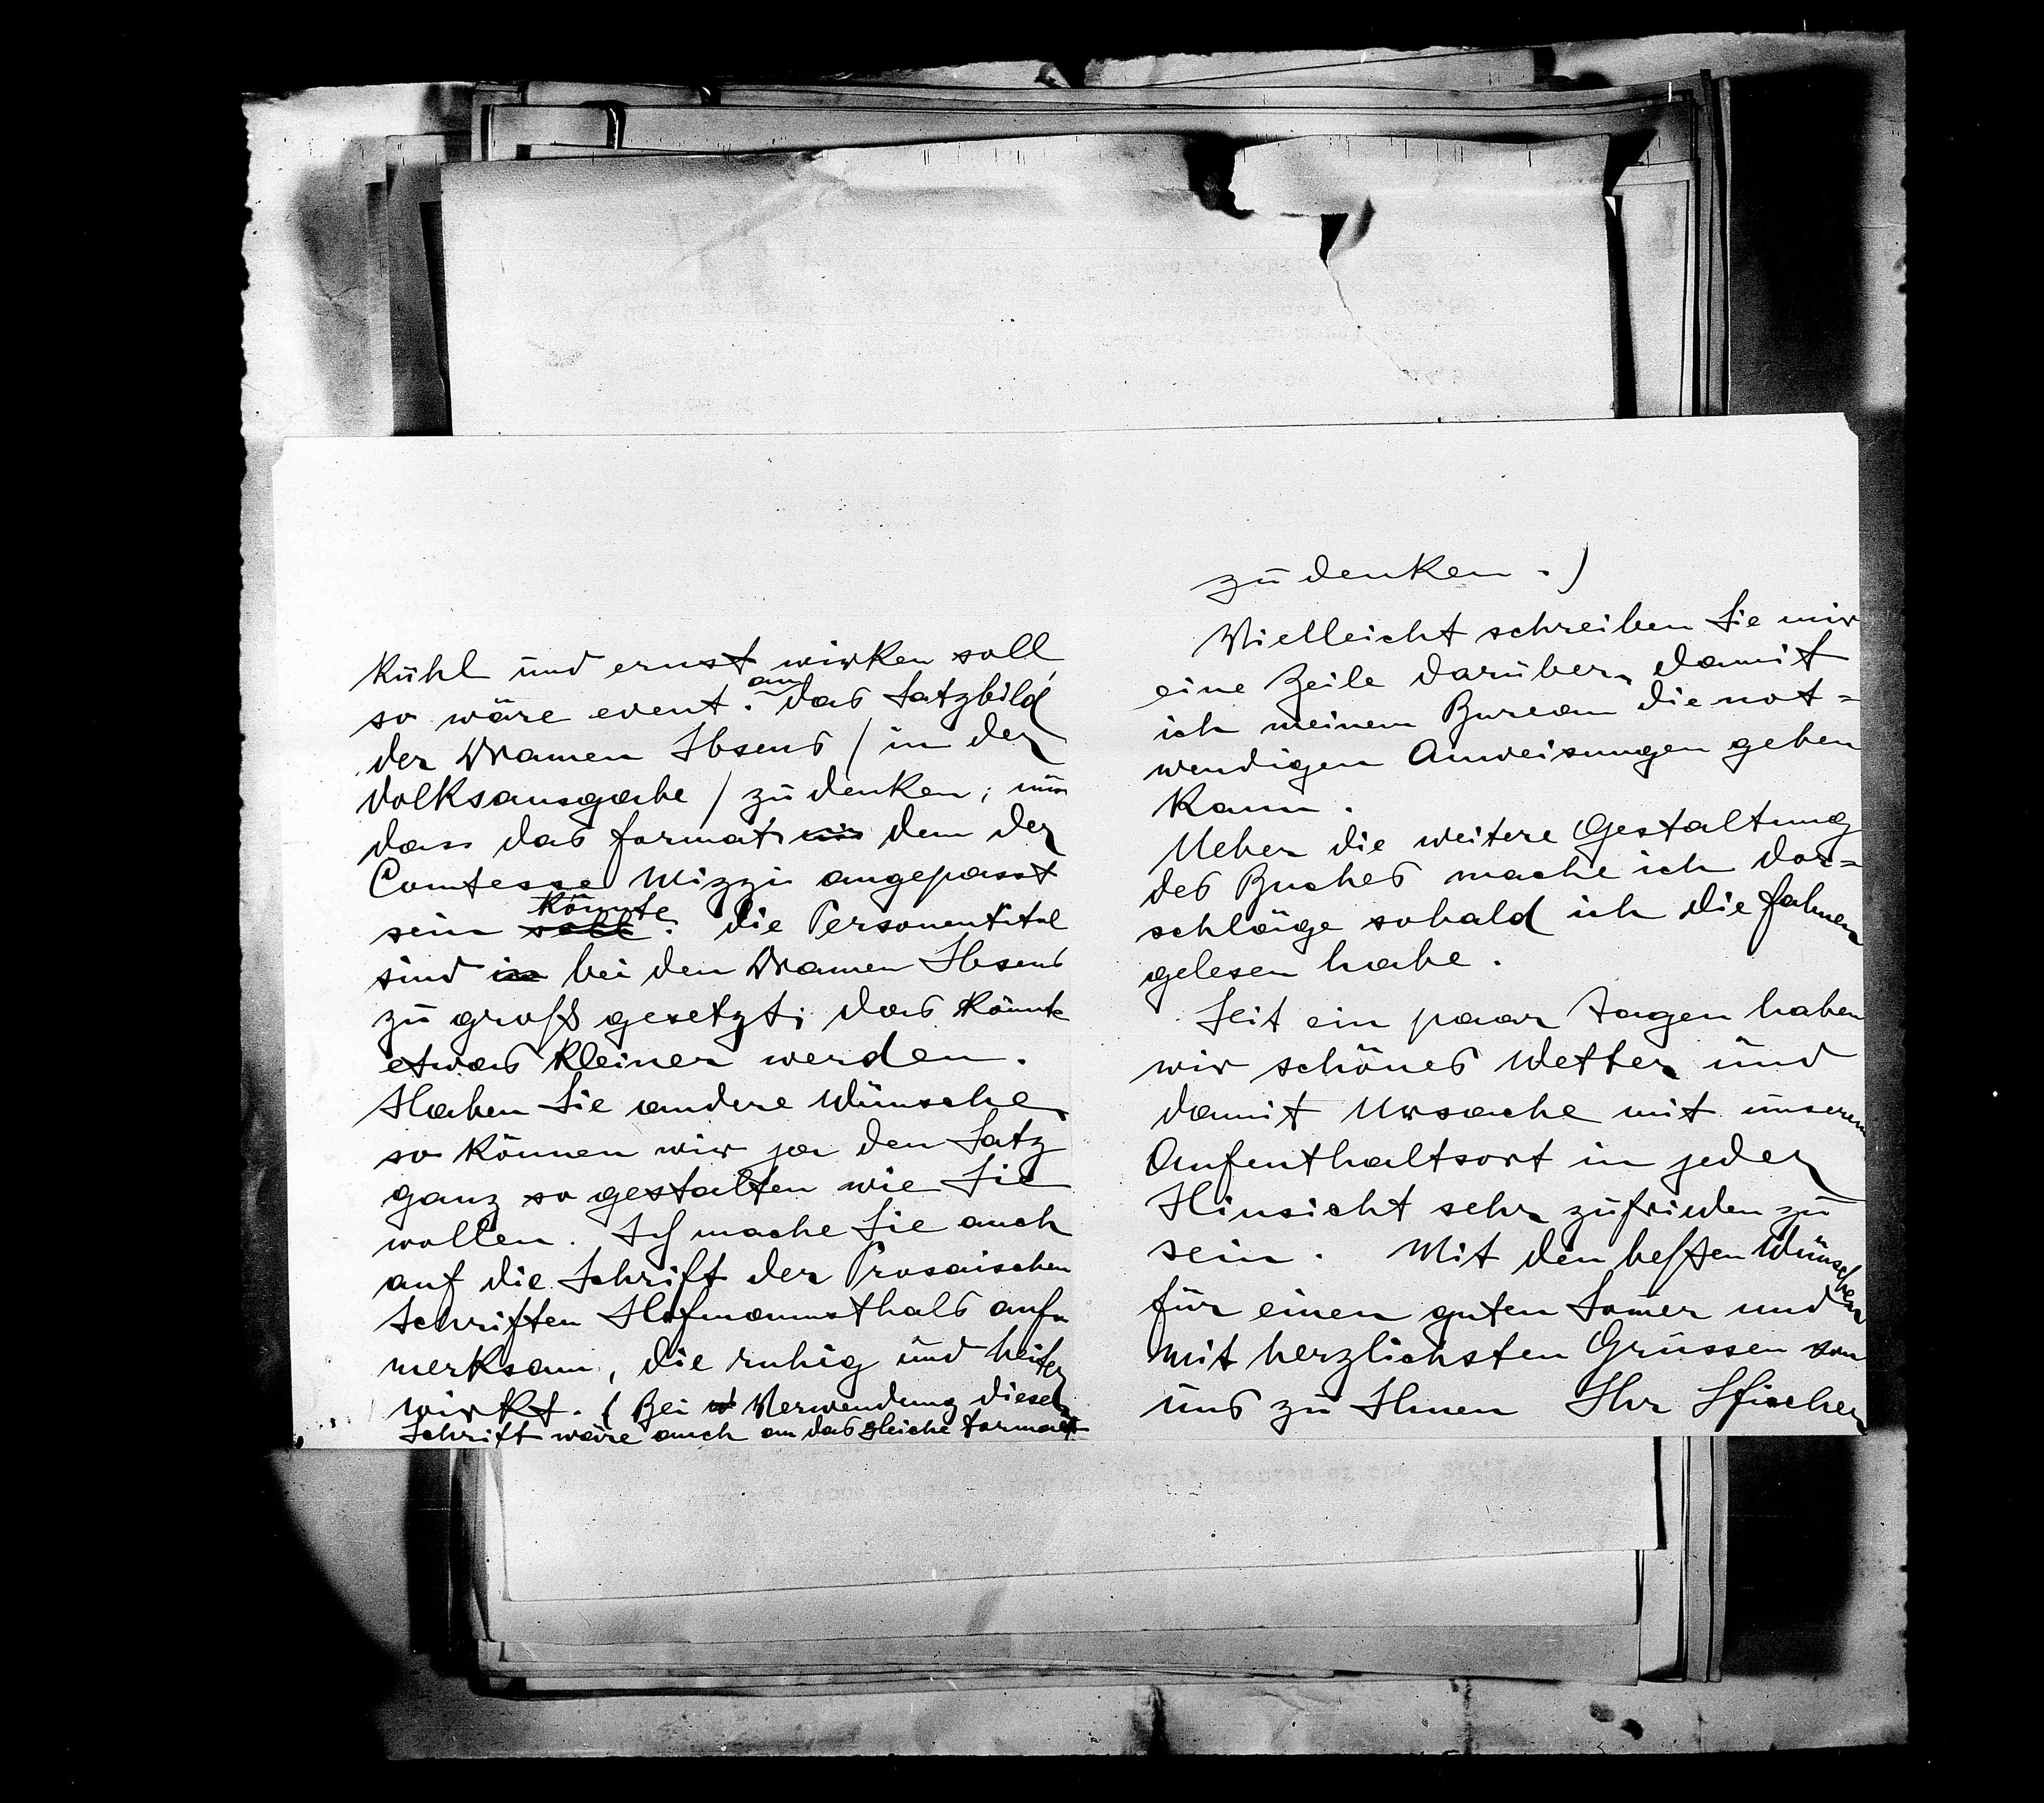 kühl und ernst wirken soll,
so wäre event. an das Satzbild
der Dramen Ibsens / in der
Volksausgabe / zu denken, nur
dass das Format dem der
Comtesse Mizzi angepasst
sein könnte. Die Personentitel
sind in bei den Dramen Ibsens
zu groß gesetzt; das könnte
etwas kleiner werden.
Haben Sie andere Wünsche,
so können wir ja den Satz
ganz so gestalten wie Sie
wollen. Ich mache Sie auch
auf die Schrift der Prosaischen
Schriften Hofmannsthals auf-
merksam, die ruhig und heiter
wirkt. (Bei Verwendung dieser
Schrift wäre auch an das gleiche Format
zu denken.)
Vielleicht schreiben Sie mir
eine Zeile darüber, damit
ich meinem Bureau die not=
wendigen Anweisungen geben
kann.
Ueber die weitere Gestaltung
des Buches mache ich Vor=
schläge sobald ich die Fahnen
gelesen habe.
Seit ein paar Tagen haben
wir schönes Wetter und
damit Ursache mit unserem
Aufenthaltsort in jeder
Hinsicht sehr zufrieden zu
sein. Mit den besten Wünschen
für einen guten Somer und
mit herzlichsten Grüssen von
uns zu Ihnen Ihr SFischer